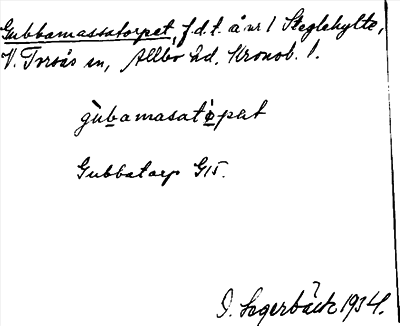 Gubbamassatorpet, f.d.t. å nr 1 Steglehylte,
V. Torsås sn, Allbo hd. Kronob. l.
gùbamasatòpat
Gubbatorp G15.
I. Segerbäck 1934.